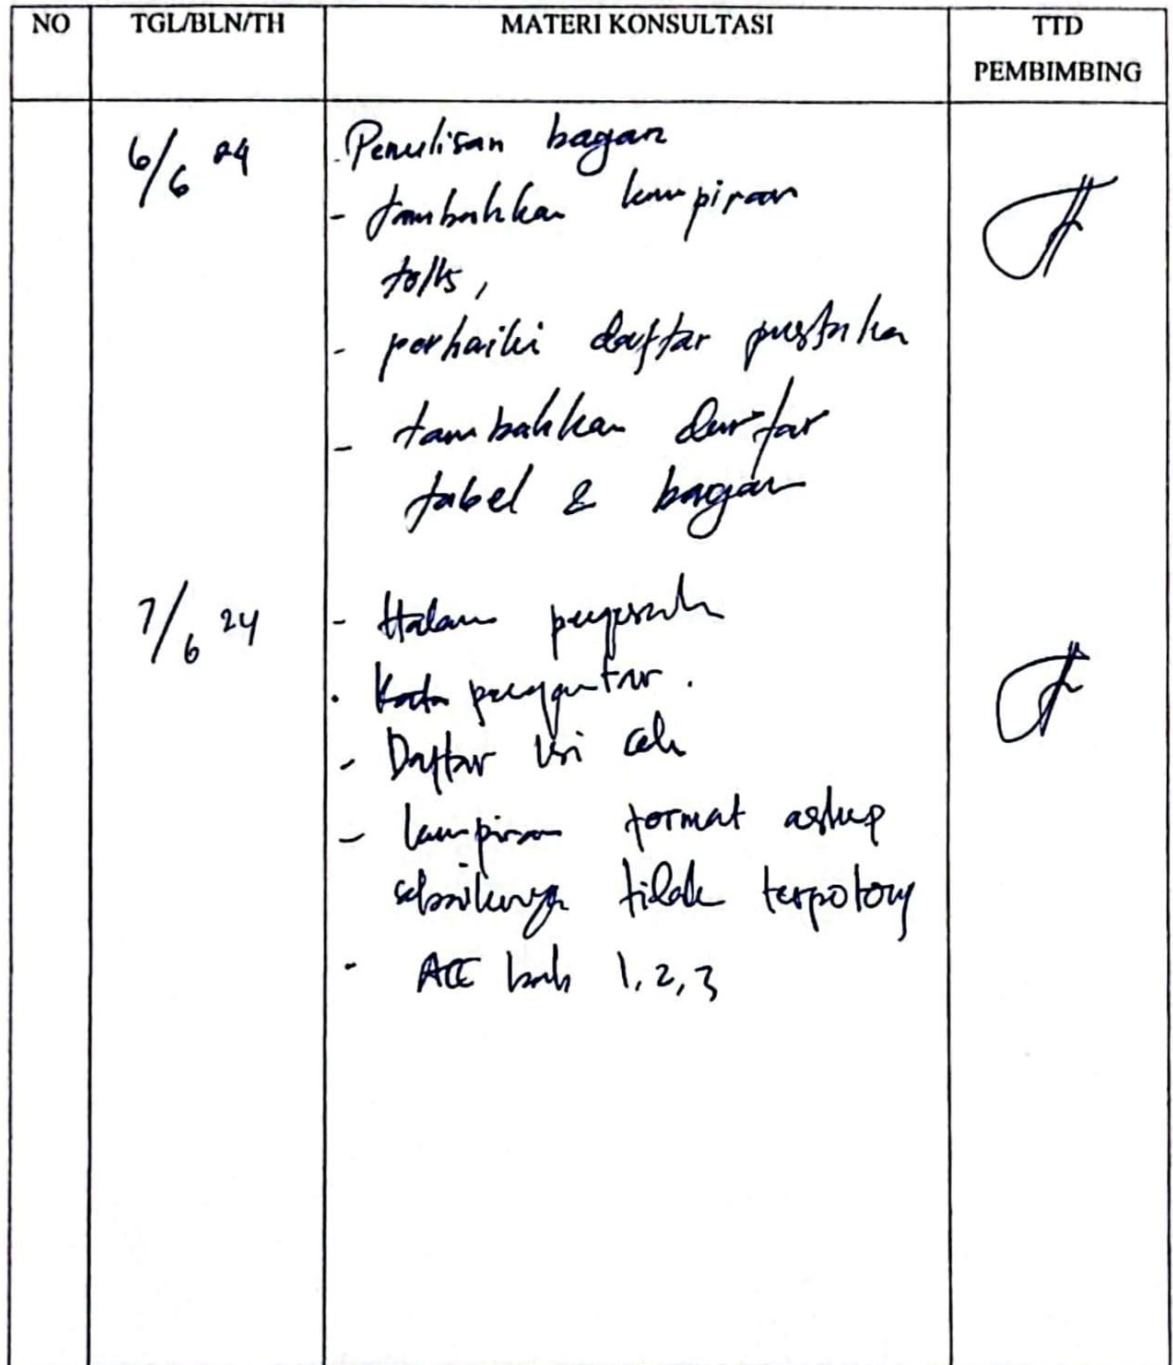 NO TGL/BLN/TH MATERI KONSULTASI TTD
PEMBIMBING
6/6 24 - Penulisan bagan
- tambahkan lampiran
perbaiki daftar pustaka
- tambahkan daftar
tabel & bagan
7/6 24 - Halam
- Kata pengantar.
- Daftar isi cek
- lampiran format askep
sebaiknya tidak terpotong
- ACC bab 1, 2, 3